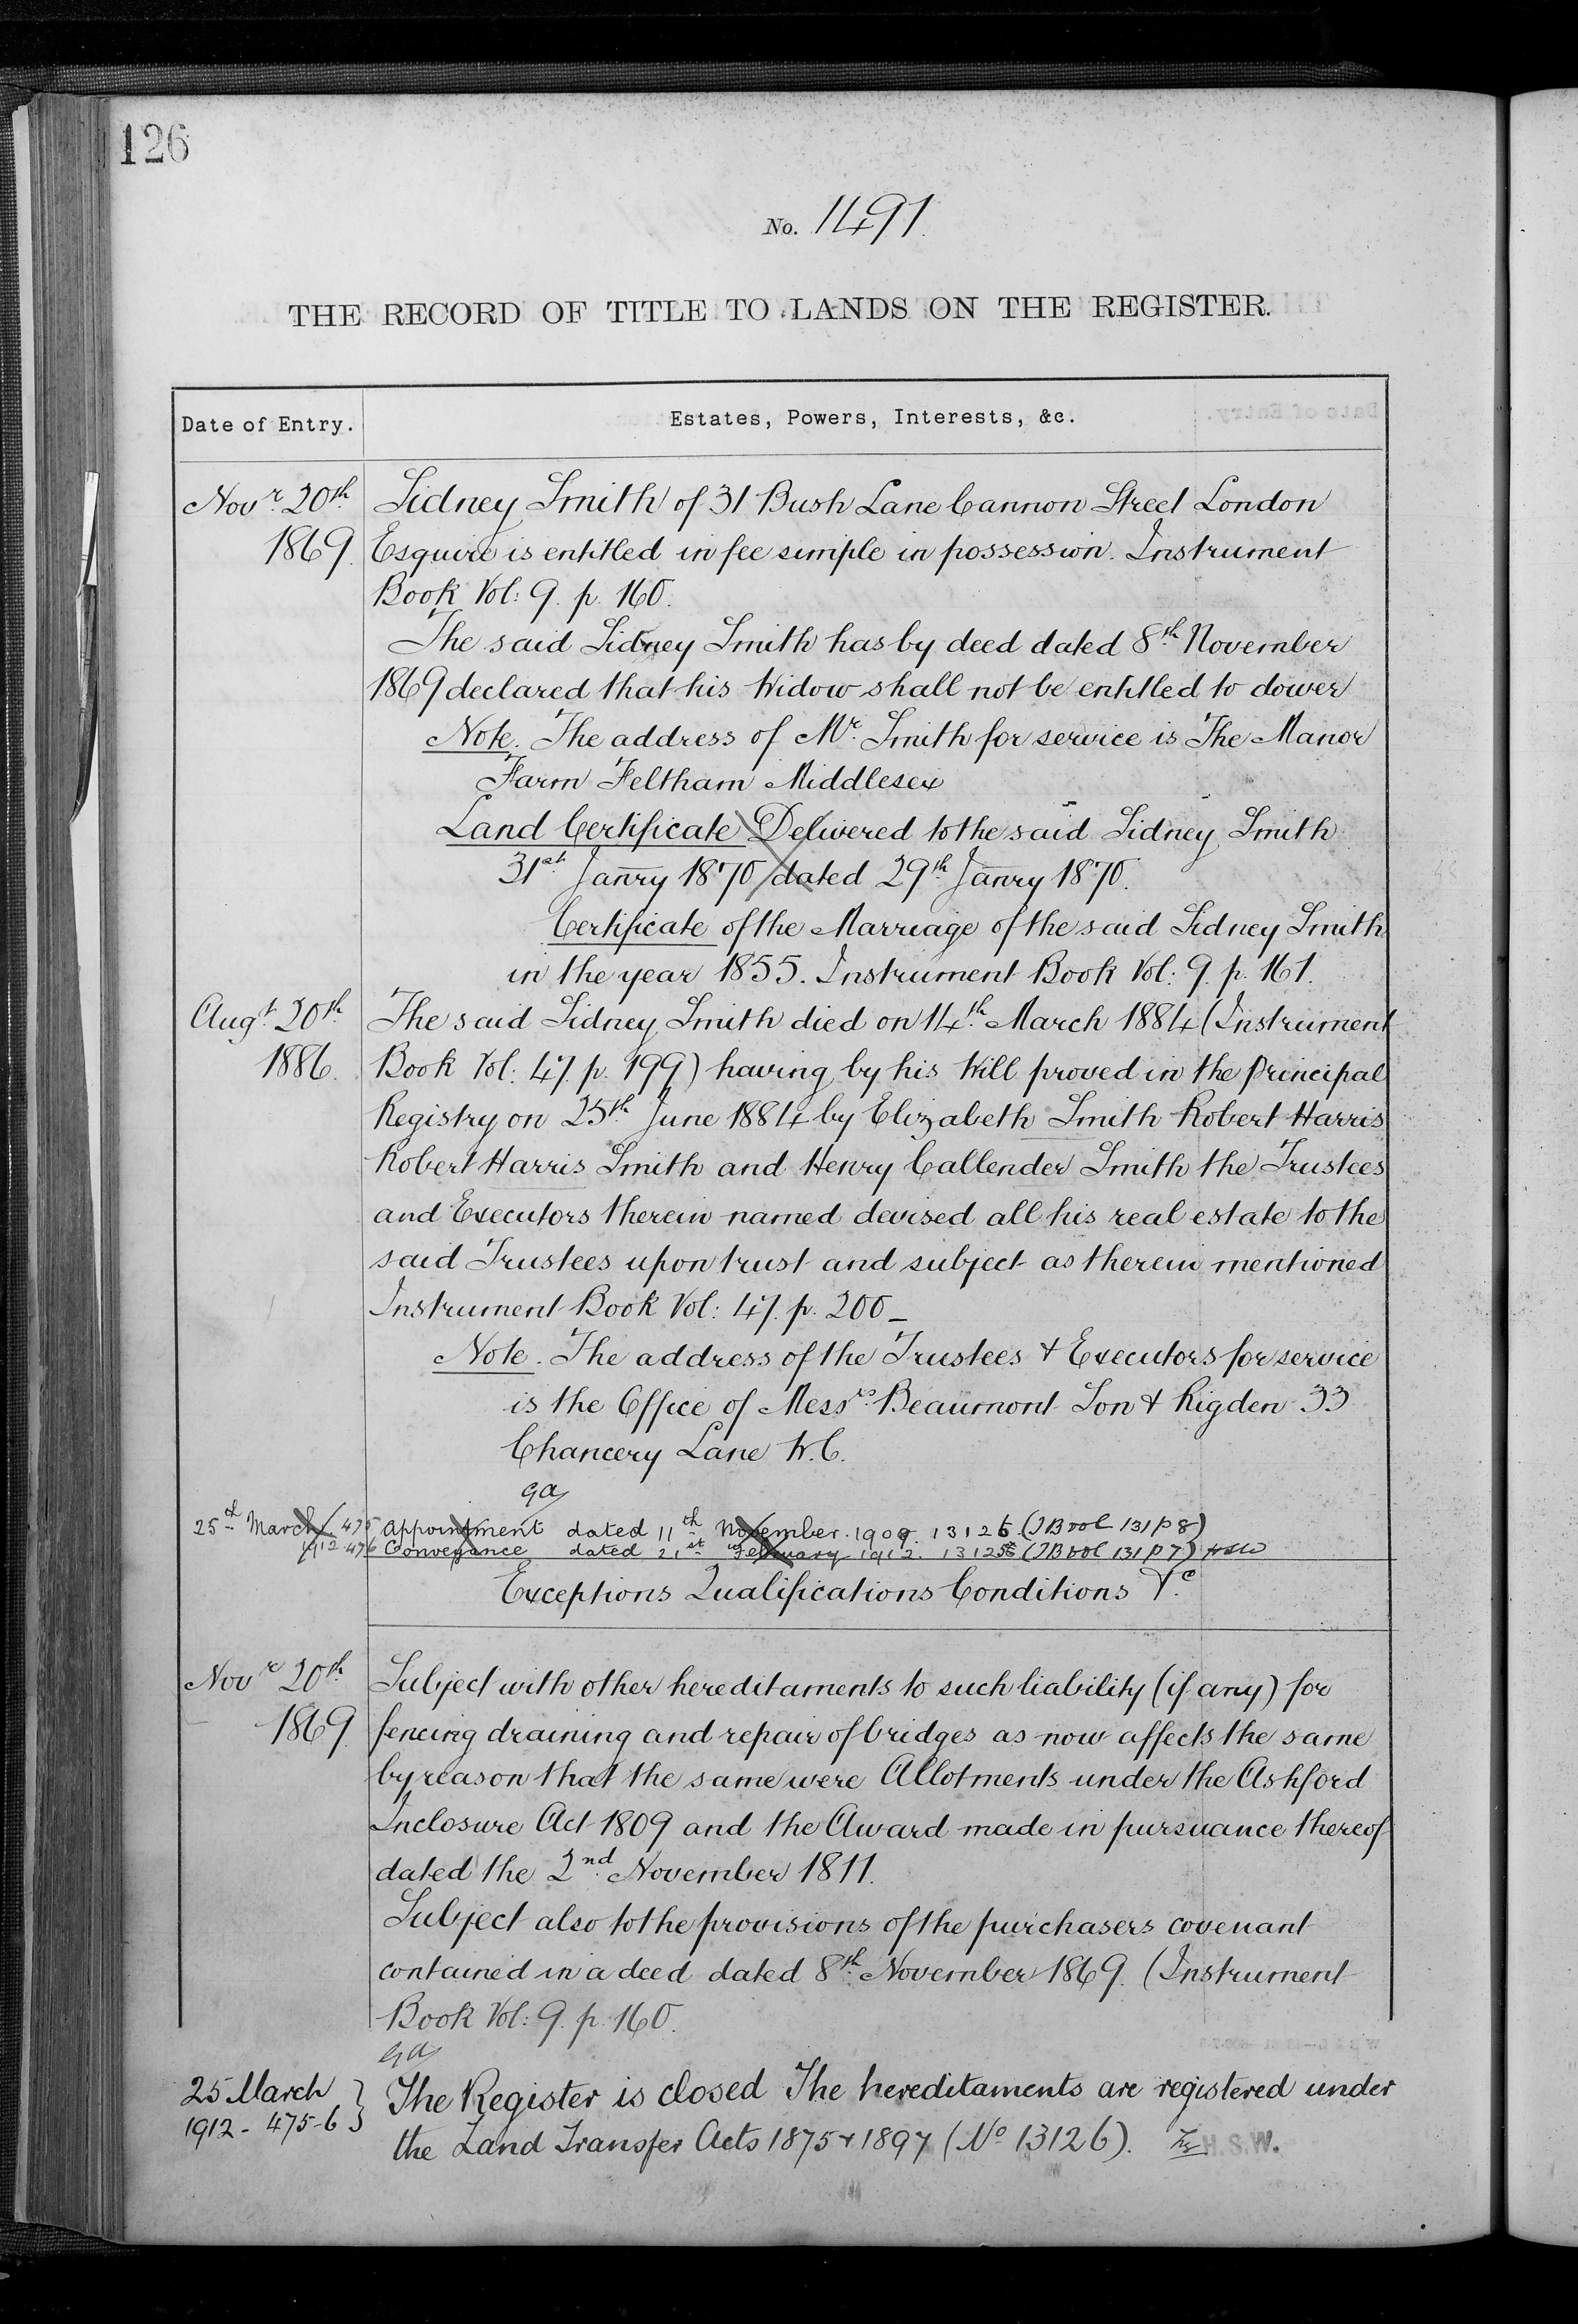 126
No. 1491.
THE RECORD OF TITLE TO LANDS ON THE REGISTER.
Date of Entry.
Estates, Powers, Interests, &c.
Novr. 20th. Sidney Smith of 31 Bush Lane Cannon Street London
1869. Esquire is entitled in fee simple in possession. Instrument
Book Vol: 9. p. 160.
The said Sidney Smith has by deed dated 8th. November
1869 declared that his Widow shall not be entitled to dower
Note. The address of Mr. Smith for service is The Manor
Farm Feltham Middlesex
Land Certificate Delivered to the said Sidney Smith
31st. Janry 1870 dated 29th. Janry 1870.
Certificate of the Marriage of the said Sidney Smith
in the year 1855. Instrument Book Vol: 9. p. 161.
Augt. 20th. The said Sidney Smith died on 14th. March 1884 (Instrument
1886. Book Vol: 47. p. 199) having by his Will proved in the Principal
Registry on 25th. June 1884 by Elizabeth Smith Robert Harris
Robert Harris Smith and Henry Callender Smith the Trustees
and Executors therein named devised all his real estate to the
said Trustees upon trust and subject as therein mentioned
Instrument Book Vol: 47. p. 200_
Note. The address of the Trustees & Executors for service
is the Office of Messrs. Beaumont Son & Rigden 33
Chancery Lane W.C.
25th March. 475 Appointment dated 11th November. 1909. 13126 (I Book 131 p 8)
1912. 476 Conveyance dated 21st February 1912. 13126 (I Book 131 p 7) HSW
Exceptions Qualifications Conditions &c.
Novr 20th. Subject with other hereditaments to such liability (if any) for
1869. fencing draining and repair of bridges as now affects the same
by reason that the same were Allotments under the Ashford
Inclosure Act 1809 and the Award made in pursuance thereof
dated the 2nd. November 1811.
Subject also to the provisions of the purchasers covenant
contained in a deed dated 8th. November 1869. (Instrument
Book Vol: 9. p. 160.
25 March } The Register is closed The hereditaments are registered under
1912 - 475-6 the Land Transfer Acts 1875 & 1897 (No 13126). H.S.W.